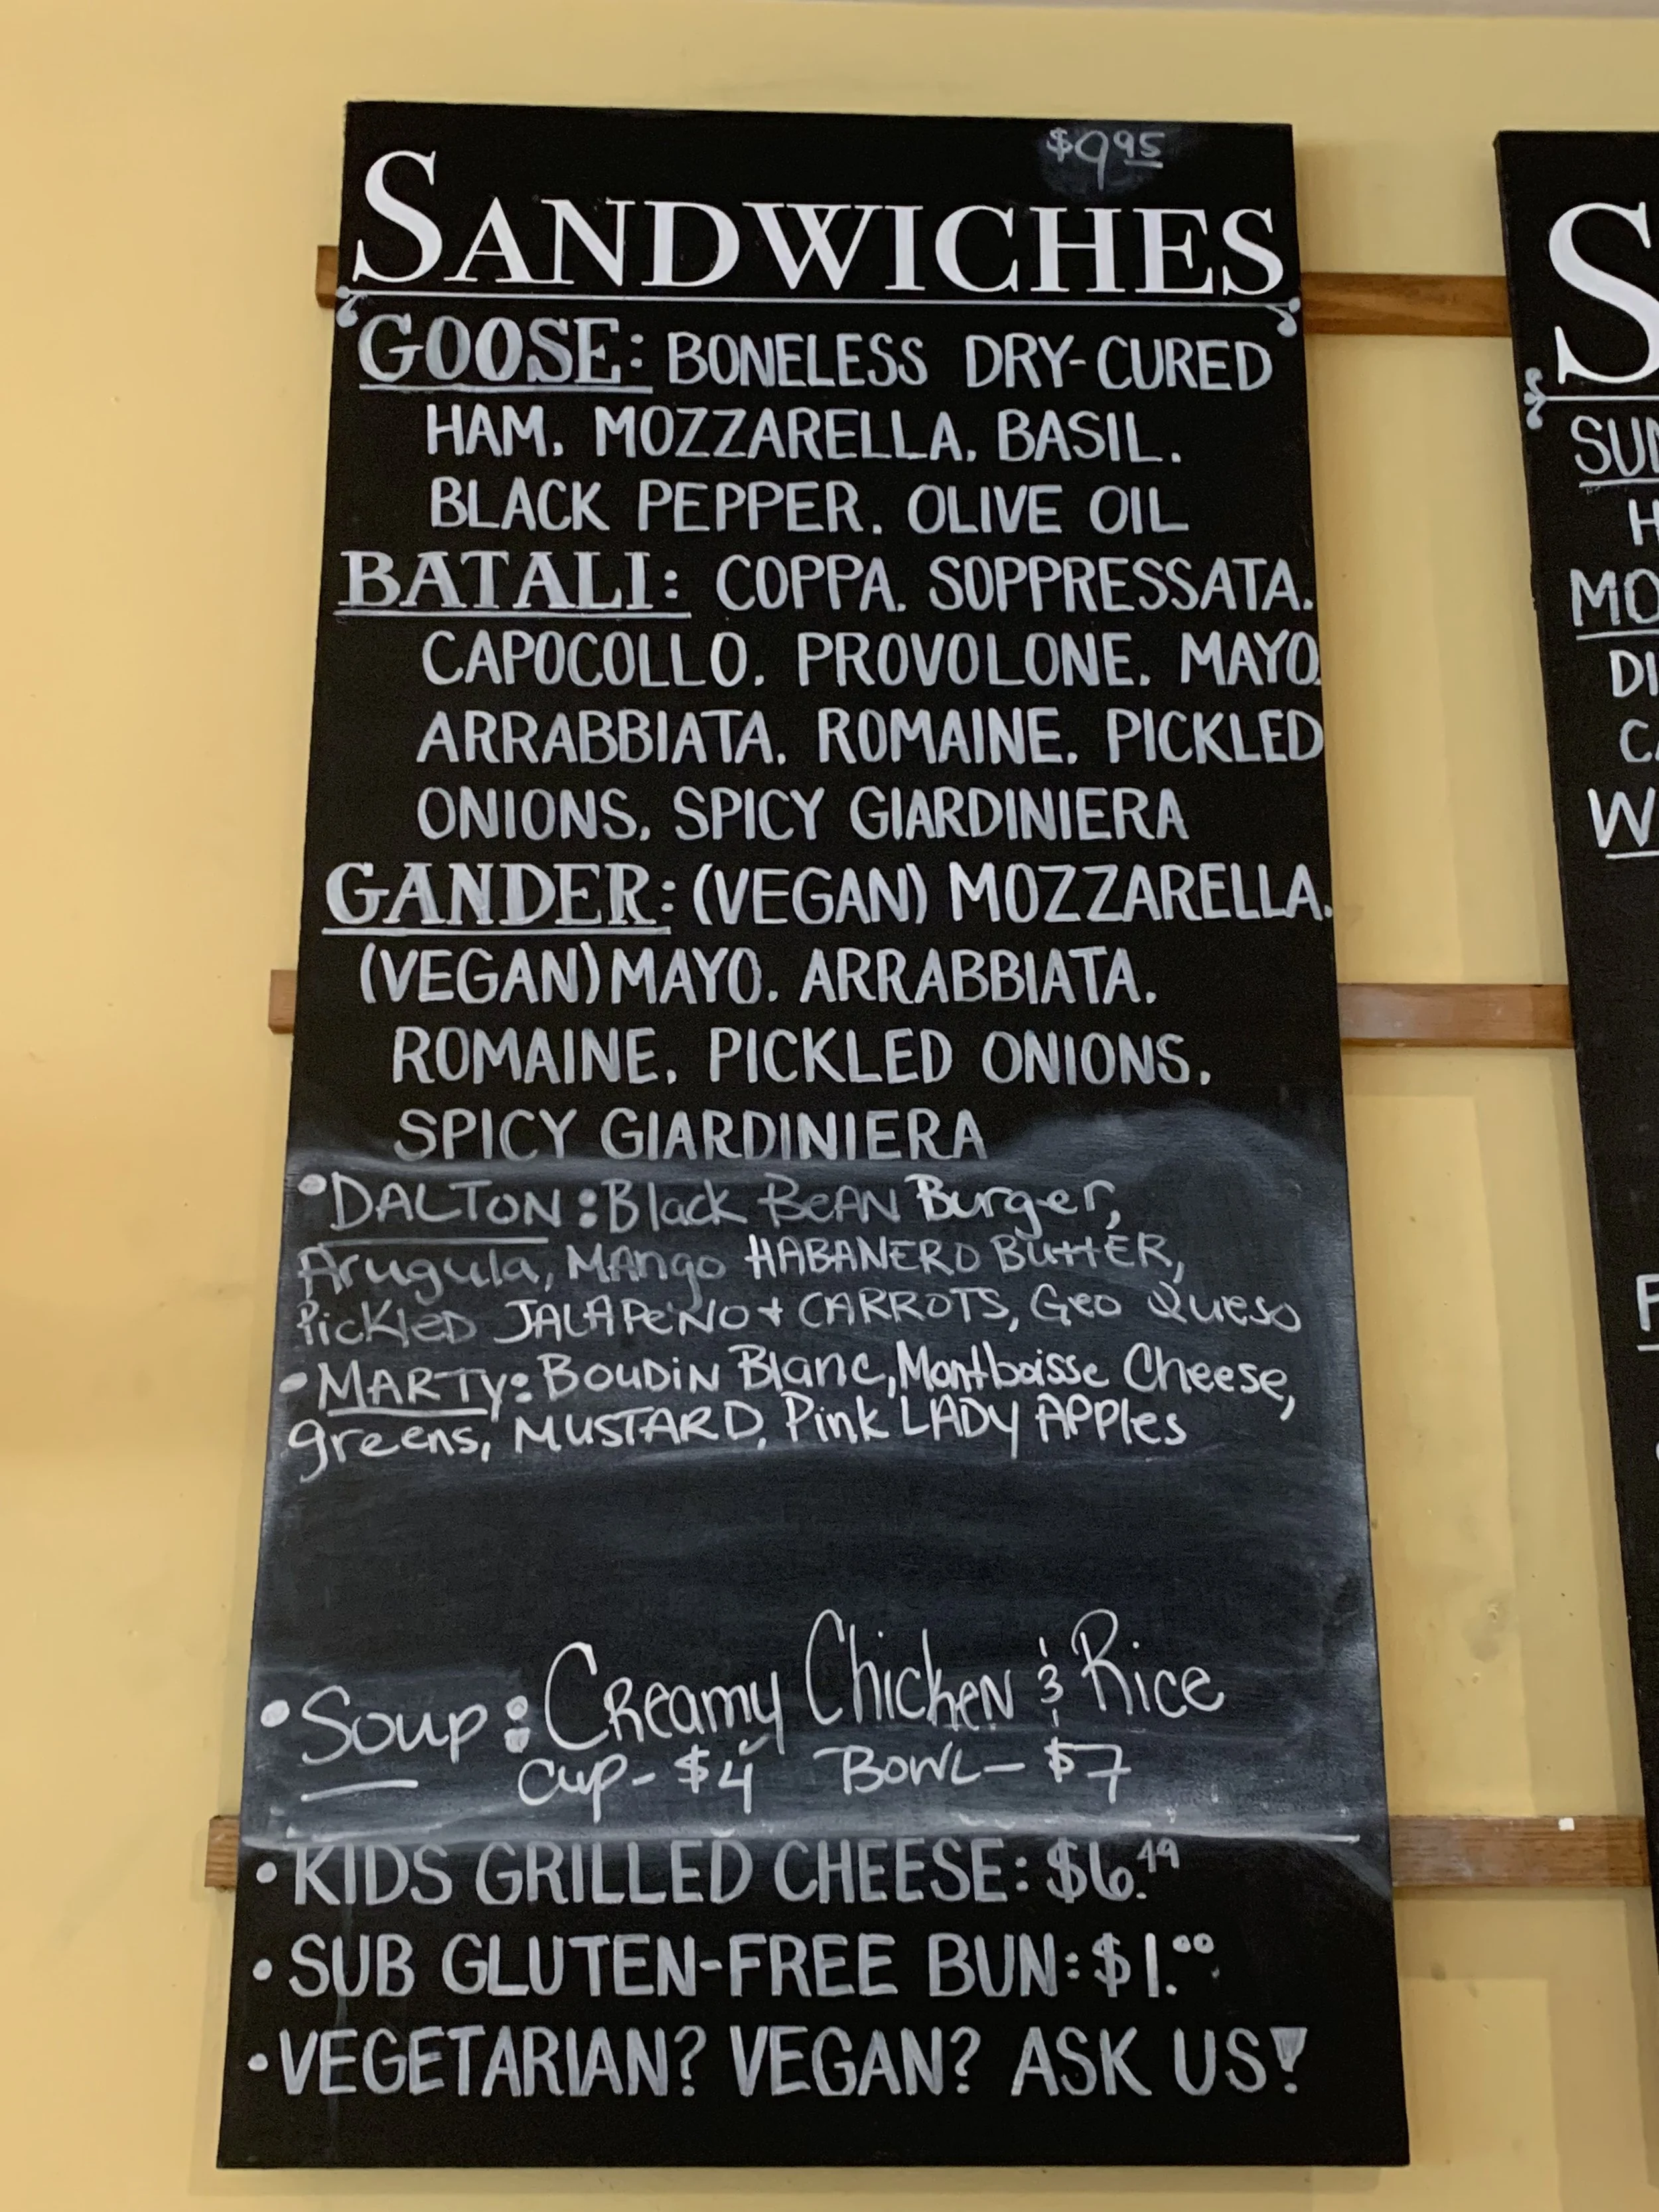 $9.95
SANDWICHES
GOOSE: BONELESS DRY-CURED
HAM. MOZZARELLA. BASIL.
BLACK PEPPER. OLIVE OIL
BATALI: COPPA. SOPPRESSATA.
CAPOCOLLO. PROVOLONE. MAYO.
ARRABBIATA. ROMAINE. PICKLED
ONIONS. SPICY GIARDINIERA
GANDER: (VEGAN) MOZZARELLA.
(VEGAN) MAYO. ARRABBIATA.
ROMAINE. PICKLED ONIONS.
SPICY GIARDINIERA
•DALTON: Black BeAN Burger,
Arugula, MAngo HABANERO ButtER,
PickleD JALAPeNO + CARROTS, Geo Queso
•MARTY: BOUDiN Blanc, Montboisse Cheese,
greens, MUSTARD, Pink LADY APPles
•Soup: CReamy ChickeN & Rice
Cup- $4 BOWL- $7
•KIDS GRILLED CHEESE: $6.49
•SUB GLUTEN-FREE BUN: $1.00
•VEGETARIAN? VEGAN? ASK US!
S
SUN
H
MO
DI
CA
W